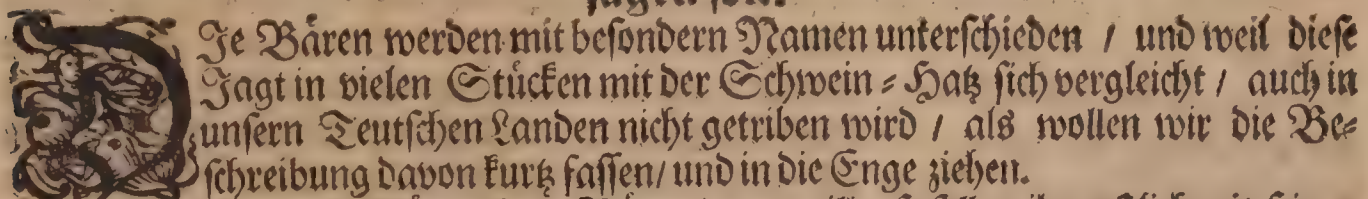 DJe Bären werden mit besondern Namen unterschieden / und weil diese
Jagt in vielen Stücken mit der Schwein-Hatz sich vergleicht / auch in
unsern Teutschen Landen nicht getriben wird / als wollen wir die Be-
schreibung davon kurtz fassen/ und in die Enge ziehen.